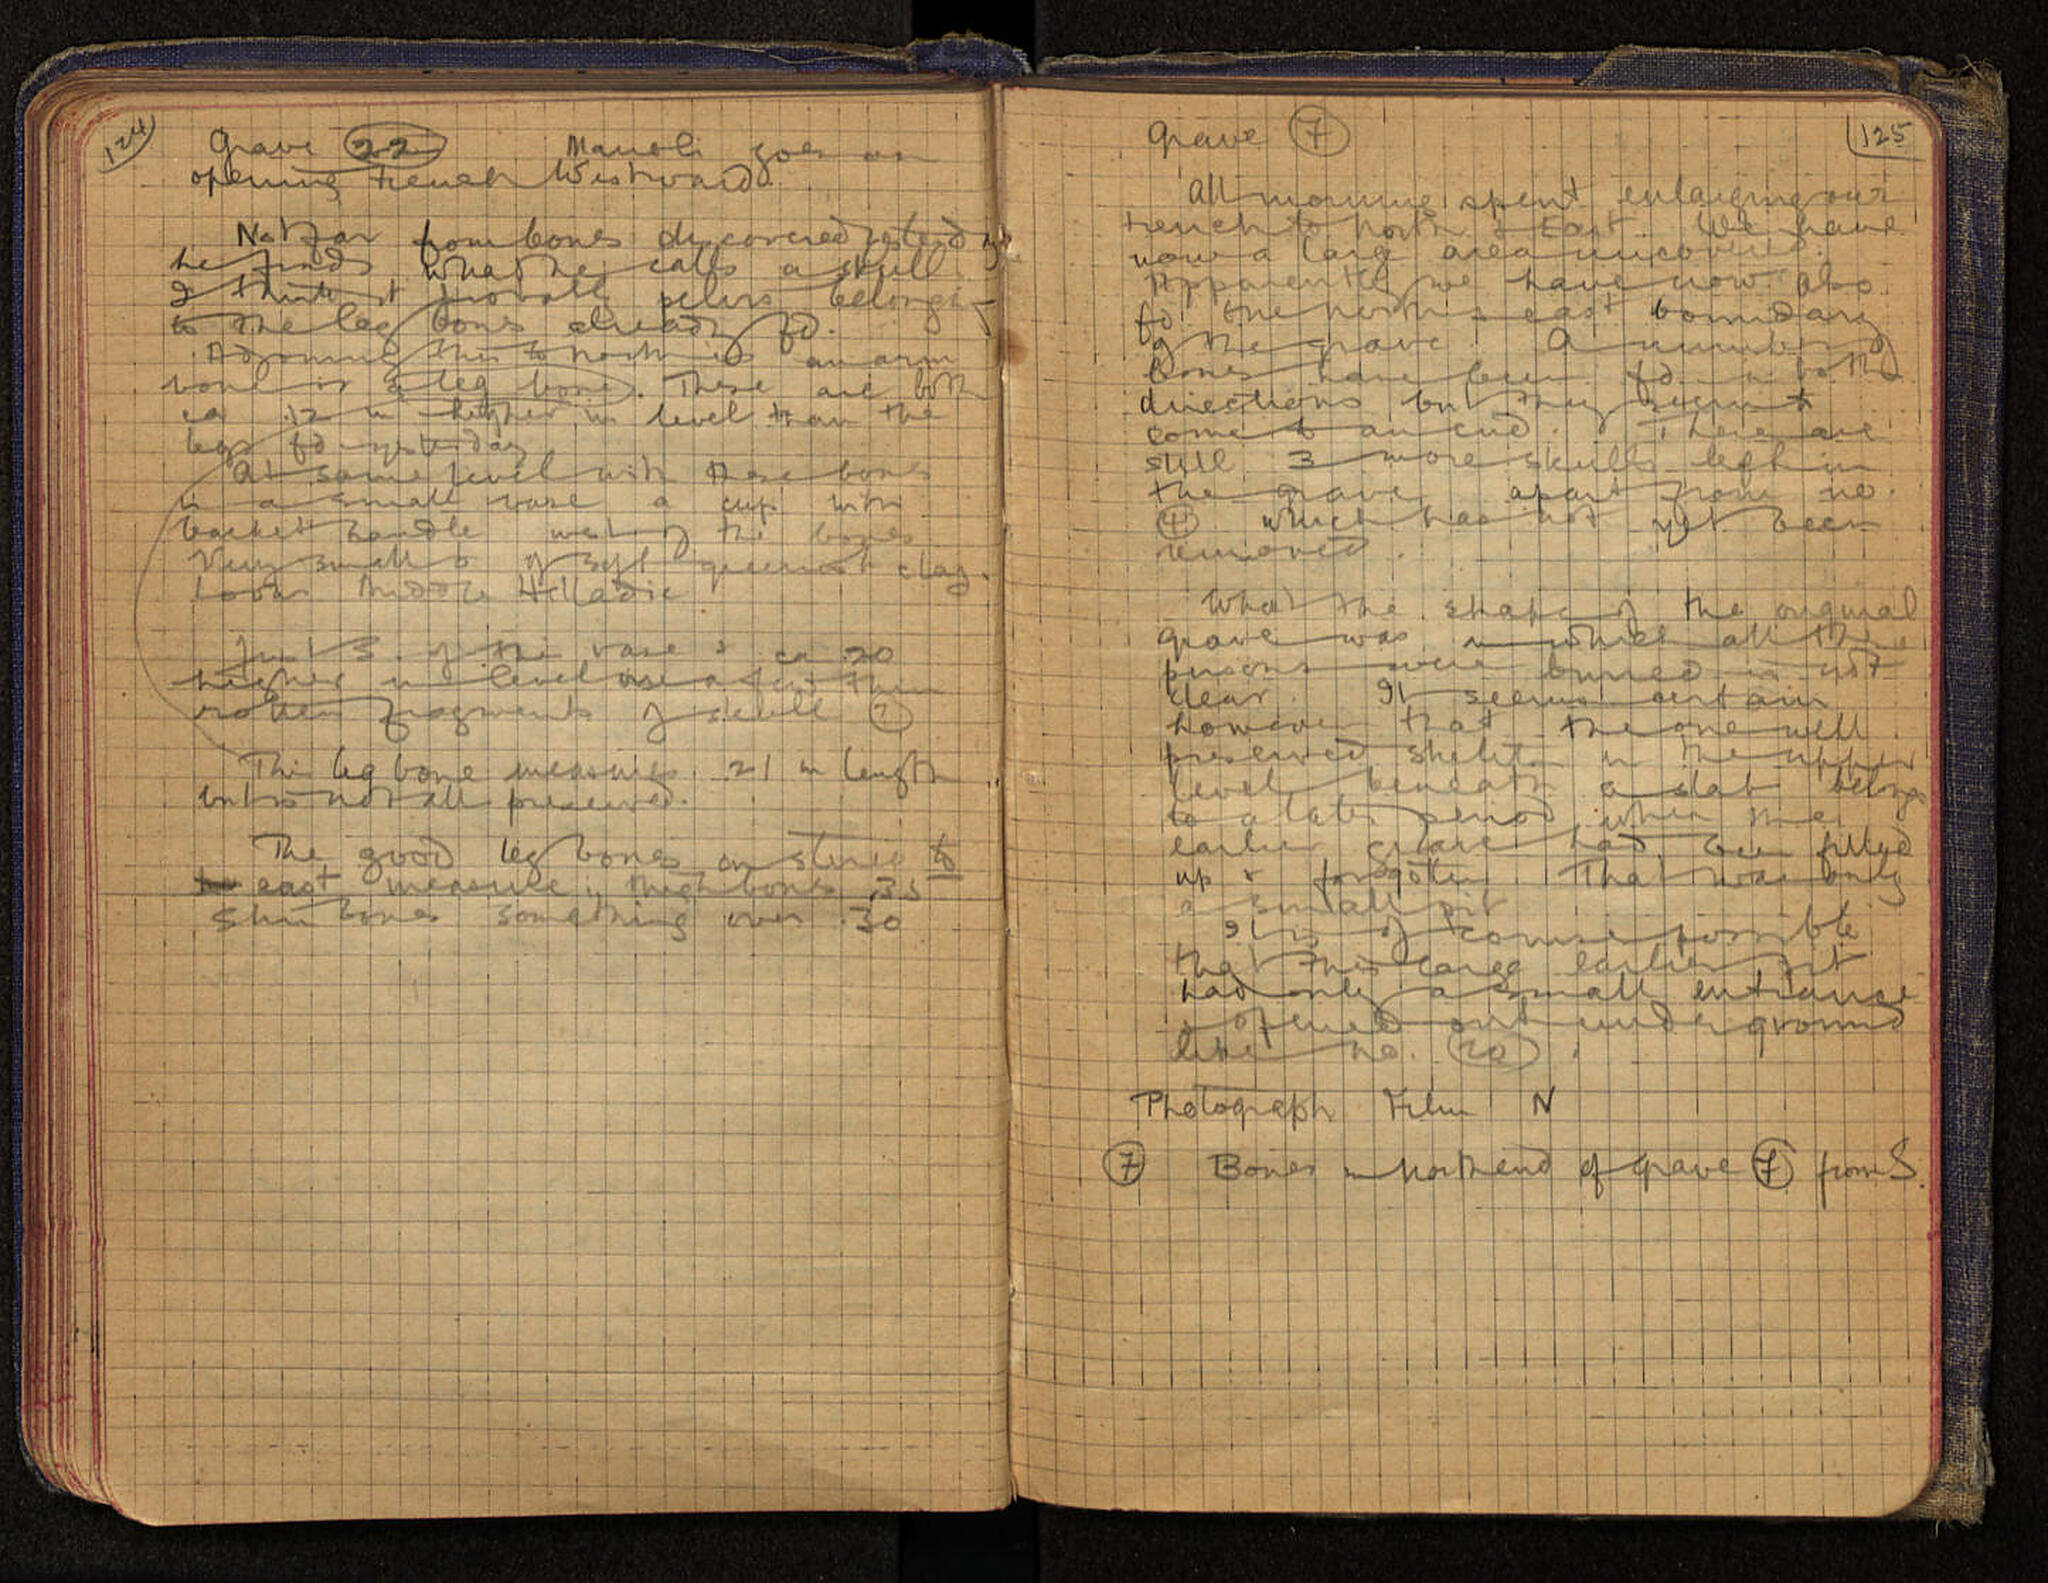 124
Grave 22 Manoli goes on
opening trench Westward.
Not far from bones discovered yesterday
he finds what he calls a skull.
I think it probably pelvis belonging
to the leg bones already fd.
Adjoining this to north is an arm
bone or a leg bone. These are both
ca .12 m higher in level than the
legs fd yesterday
At same level with these bones
is a small vase a cup with
basket handle west of the bones
Very small & of soft greenish clay.
Looks Middle Helladic
Just S. of this vase & ca .20
higher in level are a few thin
rotten fragments of skull (?)
This leg bone measures .21 in length
but is not all preserved.
The good leg bones on stereo to
east measure: thigh bones .35
Shin bones something over .30
125
Grave 7
All morning spent enlarging our
trench to north & East. We have
now a large area uncovered.
Apparently we have now also
fd the north & east boundary
of the grave. A number of
bones have been fd in both
directions but they seem to
come to an end. There are
still 3 more skulls left in
the grave apart from no.
4 which has not yet been
removed.
What the shape of the original
grave was in which all these
persons were buried is not
clear. It seems certain
however that the one well
preserved skeleton in the upper
level beneath a slab belongs
to a later period when the
earlier grave had been filled
up & forgotten. That was only
a small pit
It is of course possible
that this large earlier pit
had only a small entrance
& opened out underground
like no. 20.
Photograph Film N
7 Bones in north end of grave 7 from S.